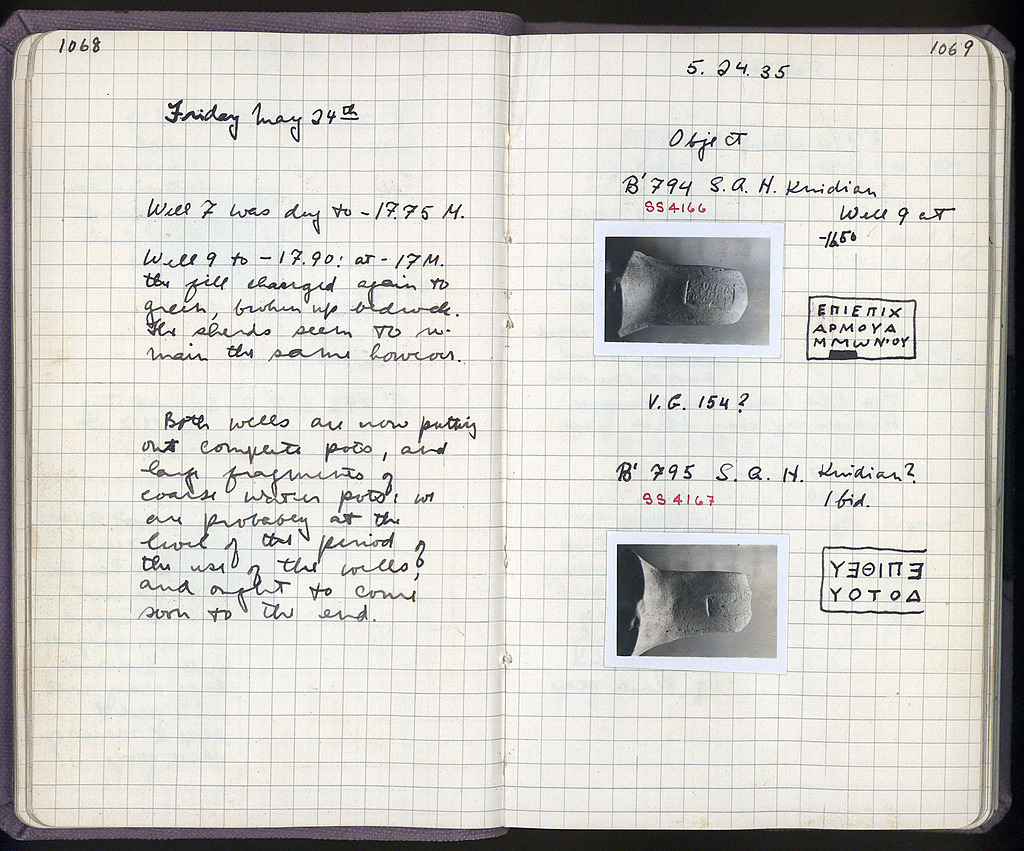 1068
Friday May 24th
Well 7 was dug to -17.75 M.
Well 9 to -17.90: at -17 M.
the fill changed again to
green, broken up bedrock.
The sherds seem to re-
main the same however.
Both wells are now putting
out complete pots, and
large fragments of
coarse water pots: we
are probably at the
level of the period of
the use of the wells,
and ought to come
soon to the end.
1069
5. 24. 35
Object
B'794 S. A. H. Knidian
SS 4166
Well 9 at
-16.50
ΕΠΙΕΠΙΧ
ΑΡΜΟΥΑ
ΜΜΩΝΙΟΥ
V. G. 154?
B' 795 S. A. H. Knidian?
SS 4167
Ibid.
ΥƎΘΙΠƎ
ΥΟΤΟΔ